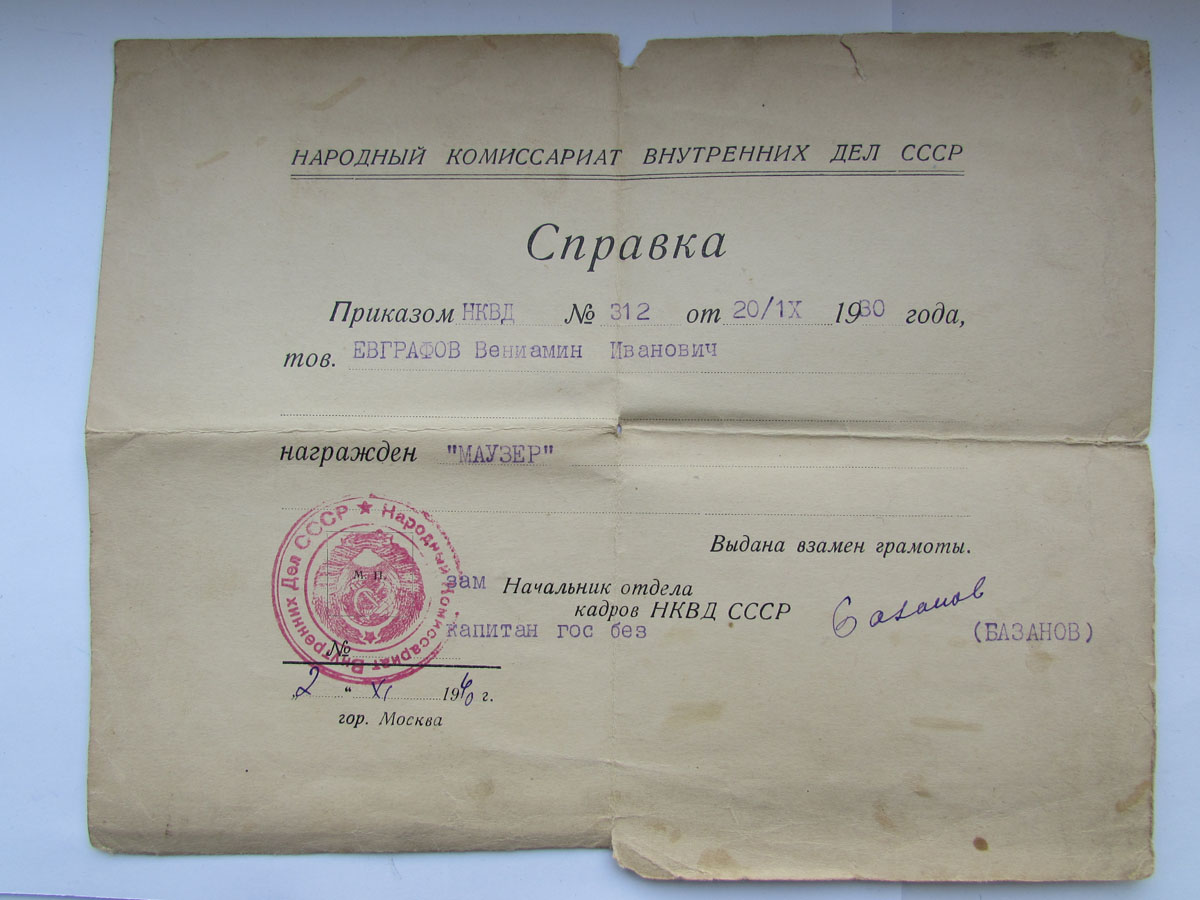 НАРОДНЫЙ КОМИССАРИАТ ВНУТРЕННИХ ДЕЛ СССР
Справка
Приказом НКВД № 312 от 20/IX 1930 года,
тов. ЕВГРАФОВ Вениамин Иванович
награжден "МАУЗЕР"
Выдана взамен грамоты.
★ Народный Комиссариат Внутренних Дел СССР
М. П.
зам Начальник отдела
кадров НКВД СССР
Базанов
капитан гос без (БАЗАНОВ)
№
„2 “ XI 1940 г.
гор. Москва